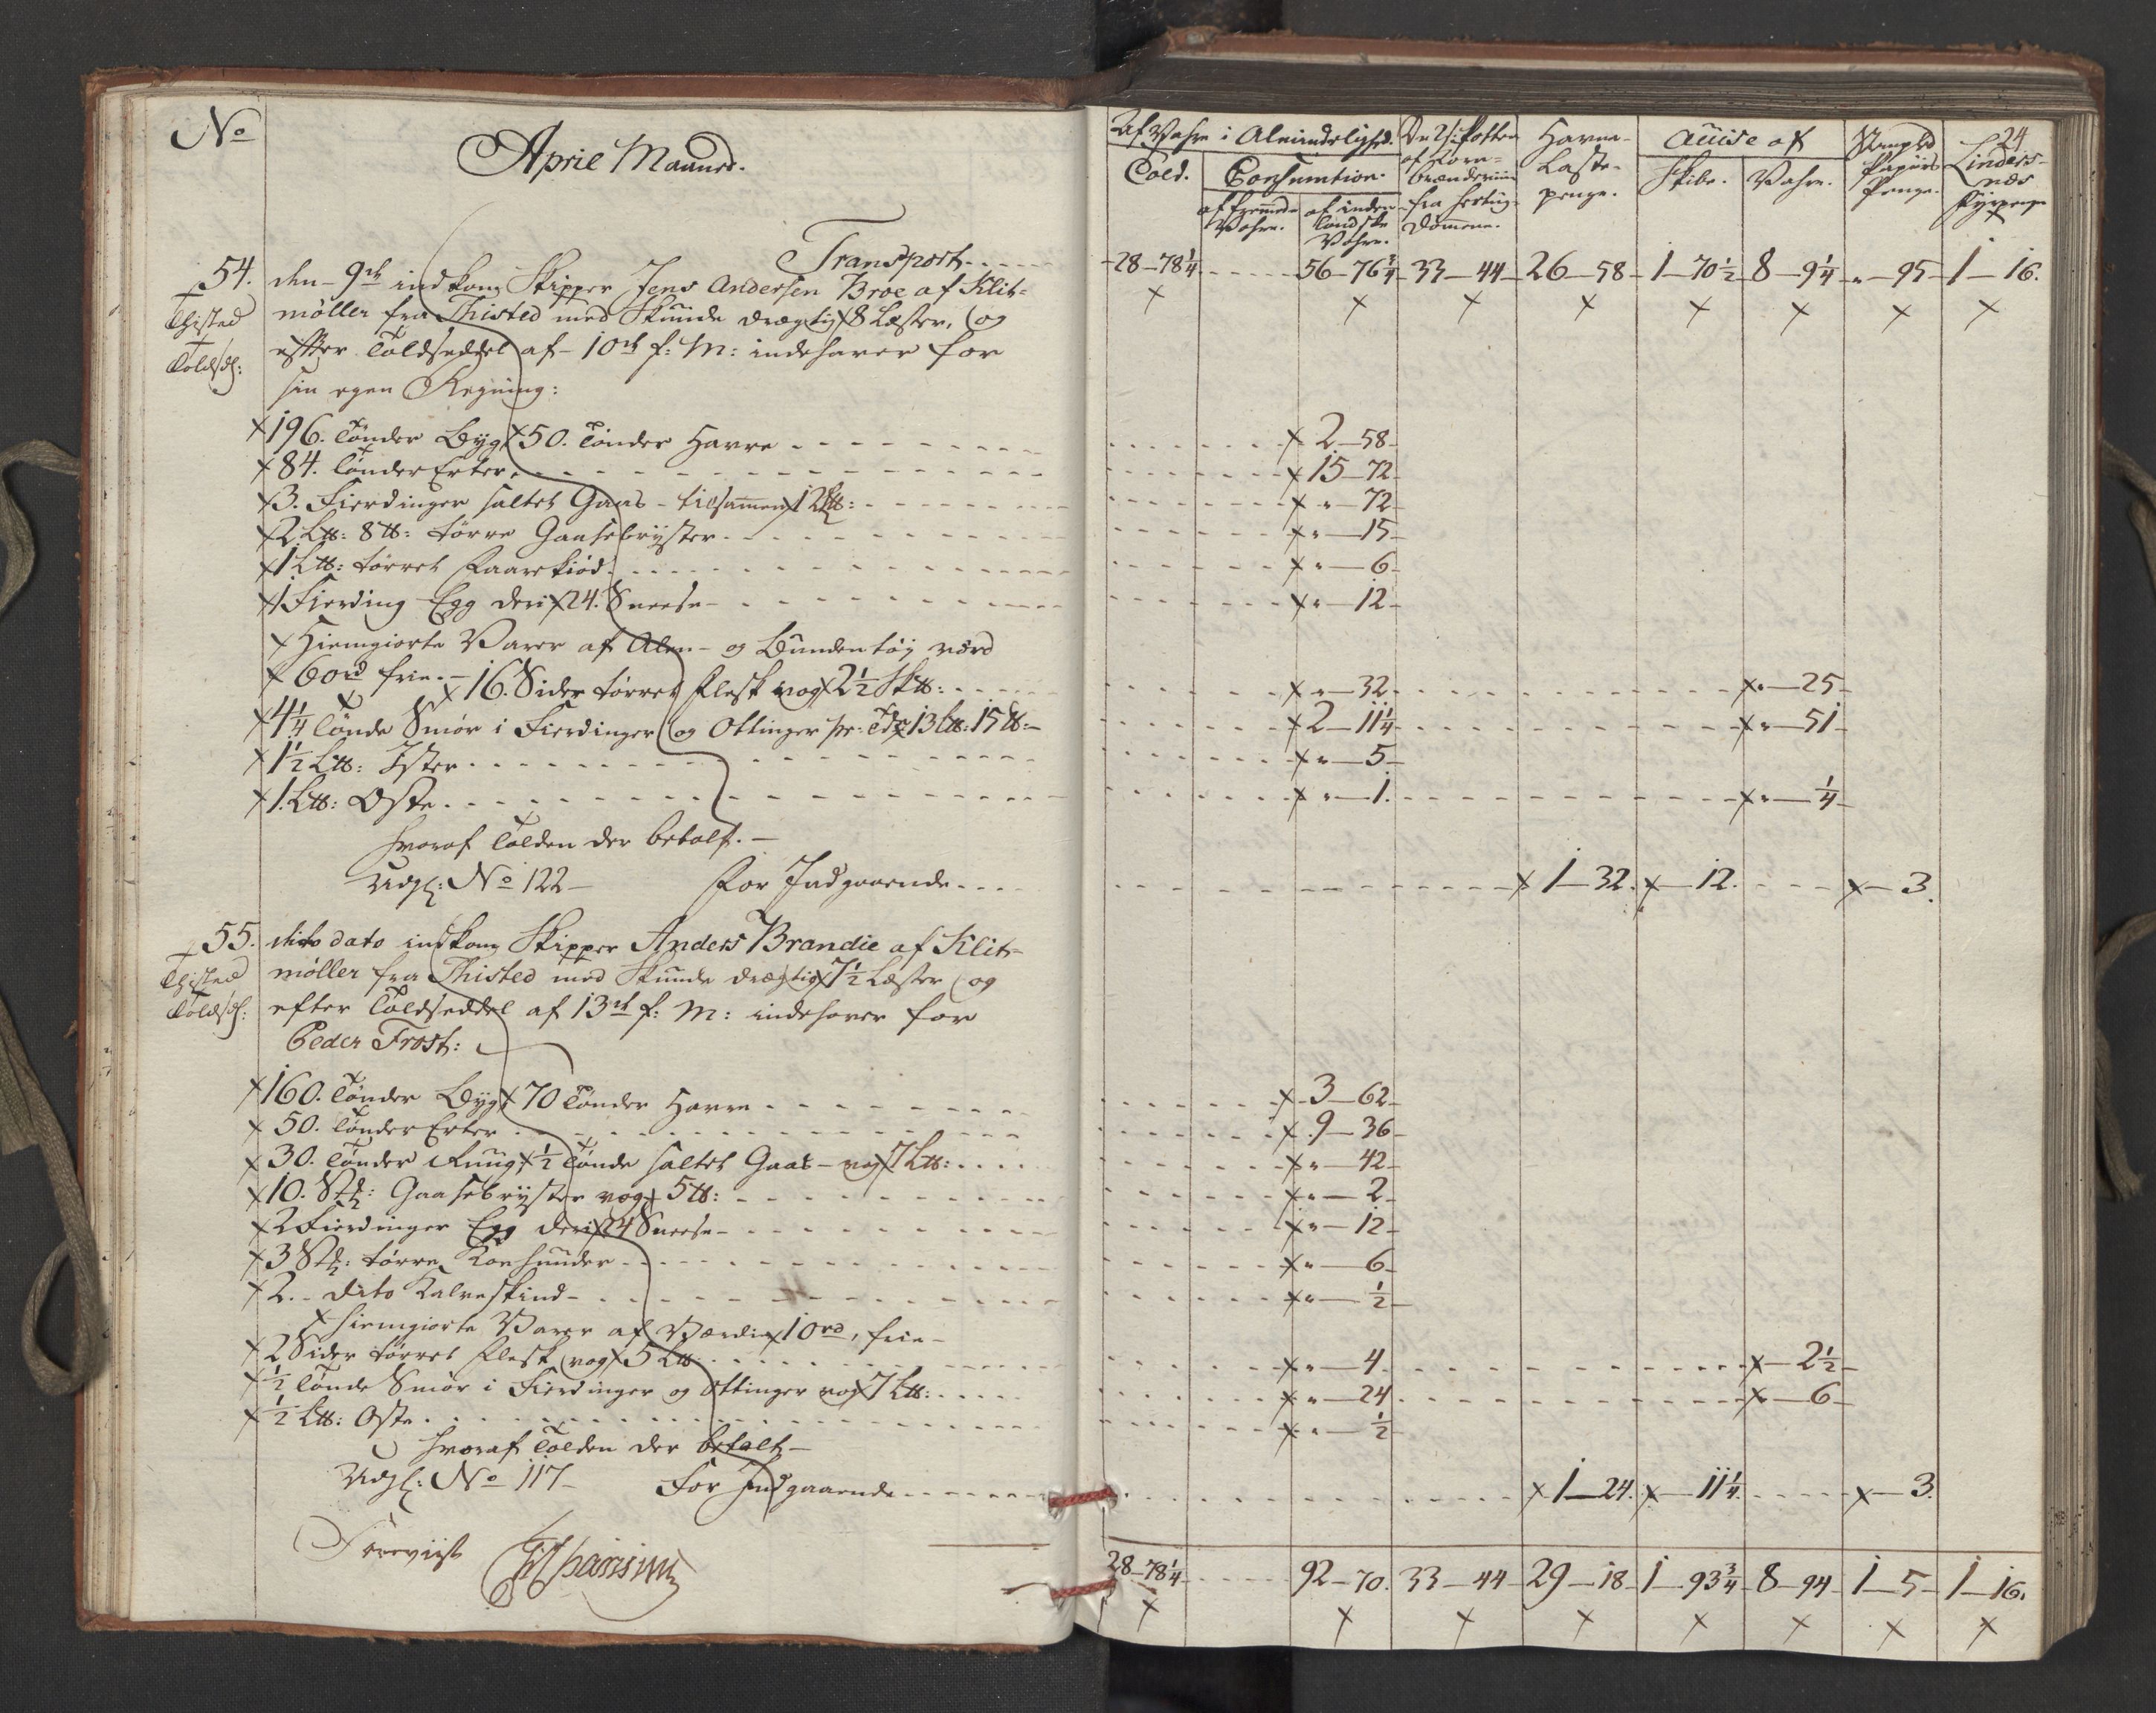 No
April Maaned.
Transport
54. den 9de indkom Skipper Jens Andersen Broe af Klit-
Thisted
Toldsdl:
møller fra Thisted med Skuude drægtig 8 Læster, og
efter Toldseddel af 10de f: M: indehaver for
sin egen Regning:
196. Tønder Byg 50. Tønder Havre
84. Tønder Erter
3. Fierdinger saltet Gaas - tilsammen 12 L℔:
2 L℔: 8 ℔: tørre Gaasebryster
1 L℔: tørret Faarekiød
1 Fierding Egg deri 24. Sneese
Hiemgiorte Varer af Alen- og Bundentøy værd
60 rd frie. - 16. Sider tørret Flesk vog 2½ Sk℔:
4¼ Tønde Smør i Fierdinger og Ottinger pr: Tde 13 L℔: 15 ℔:
1½ L℔: Ister
1. L℔: Oste
hvoraf Tolden der betalt.
Udgl: No 122 For Indgaaende
55. dito dato indkom Skipper Anders Brandie af Klit-
Thisted
Toldsdl:
møller fra Thisted med Skuude drægtig 7½ Læster og
efter Toldseddel af 13de f: M: indehaver for
Peder Frost:
160. Tønder Byg 70 Tønder Havre
50. Tønder Erter
30. Tønder Ruug ½ Tønde saltet Gaas - vog 7 L℔:
10. Stk: Gaasebryster vog 5 ℔:
2 Fierdinger Egg deri 24 Sneese
3 Stk: tørre Koehuuder
2. dito Kalveskind
hiemgiorte Varer af Værdie 10 rd, frie
2 Sider tørret Flesk vog 5 L℔
½ Tønde Smør i Fierdinger og Ottinger vog 7 L℔:
½ L℔: Oste
hvoraf Tolden der betalt
Udgl: No 117 For Indgaaende
Foreviist
24
Af Vahre i Almindelighed.
Told.
Consumtion.
af fremmede Vahre.
af inden landske Vahre.
af Korn-
brændeviin
fra Hertug-
dømmene.
Havne-
Laste-
penge.
Accise af
Skibe. Vahre.
Stemplet
Papiirs
Penge.
Linders-
næs
Fyrpenge
28-78¼ 56-76¾ 33-44 26-58 1-70½ 8-9¼ "-95 1-16.
2-58
15-72
"-72
"-15
"-6
"-12
"-32 "-25
2-11¼ "-51
"-5
"-1. "-¼
1-32. 12. 3.
3-62
9-36
"-42
"-2
"-12
"-6
"-½
"-4 2½
"-24 "-6
"-½
1-24. 11¼ 3.
28-78¼ 92-70. 33-44 29-18 1-93¾ 8-94 1-5 1-16.